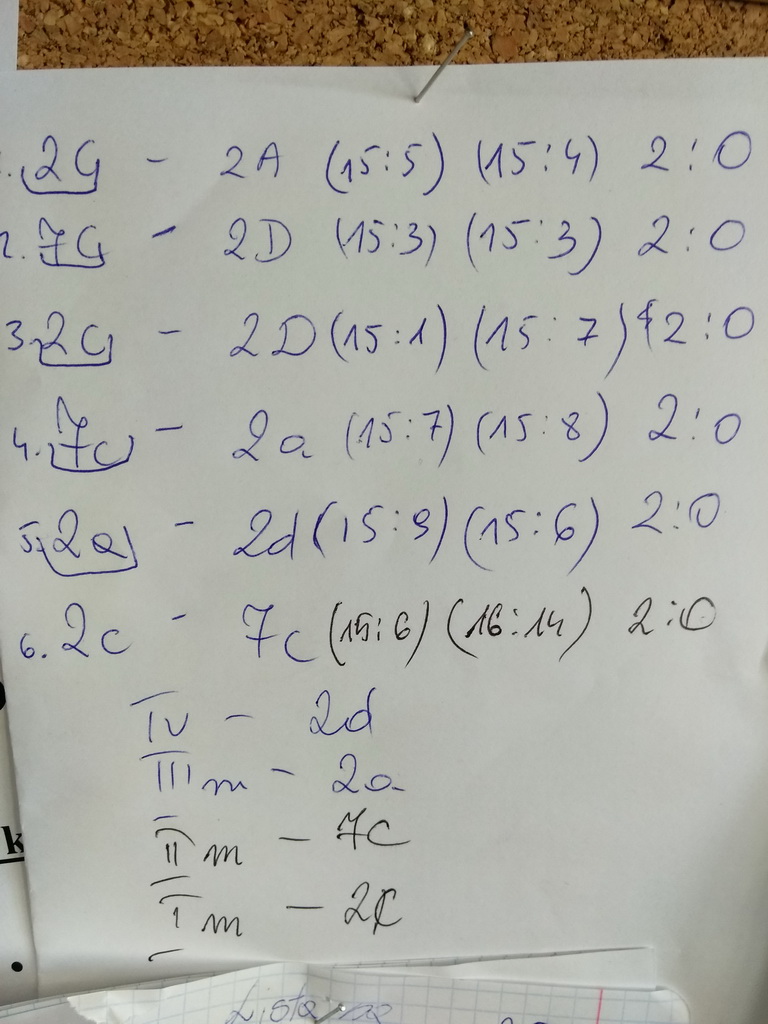 2G - 2A (15:5) (15:4) 2:0
2. 7G - 2D (15:3) (15:3) 2:0
3. 2C - 2D (15:1) (15:7) 2:0
4. 7c - 2a (15:7) (15:8) 2:0
5. 2a - 2d (15:9) (15:6) 2:0
6. 2c - 7c (15:6) (16:14) 2:0
IV - 2d
III m - 2a
II m - 7C
I m - 2C
k
Lista